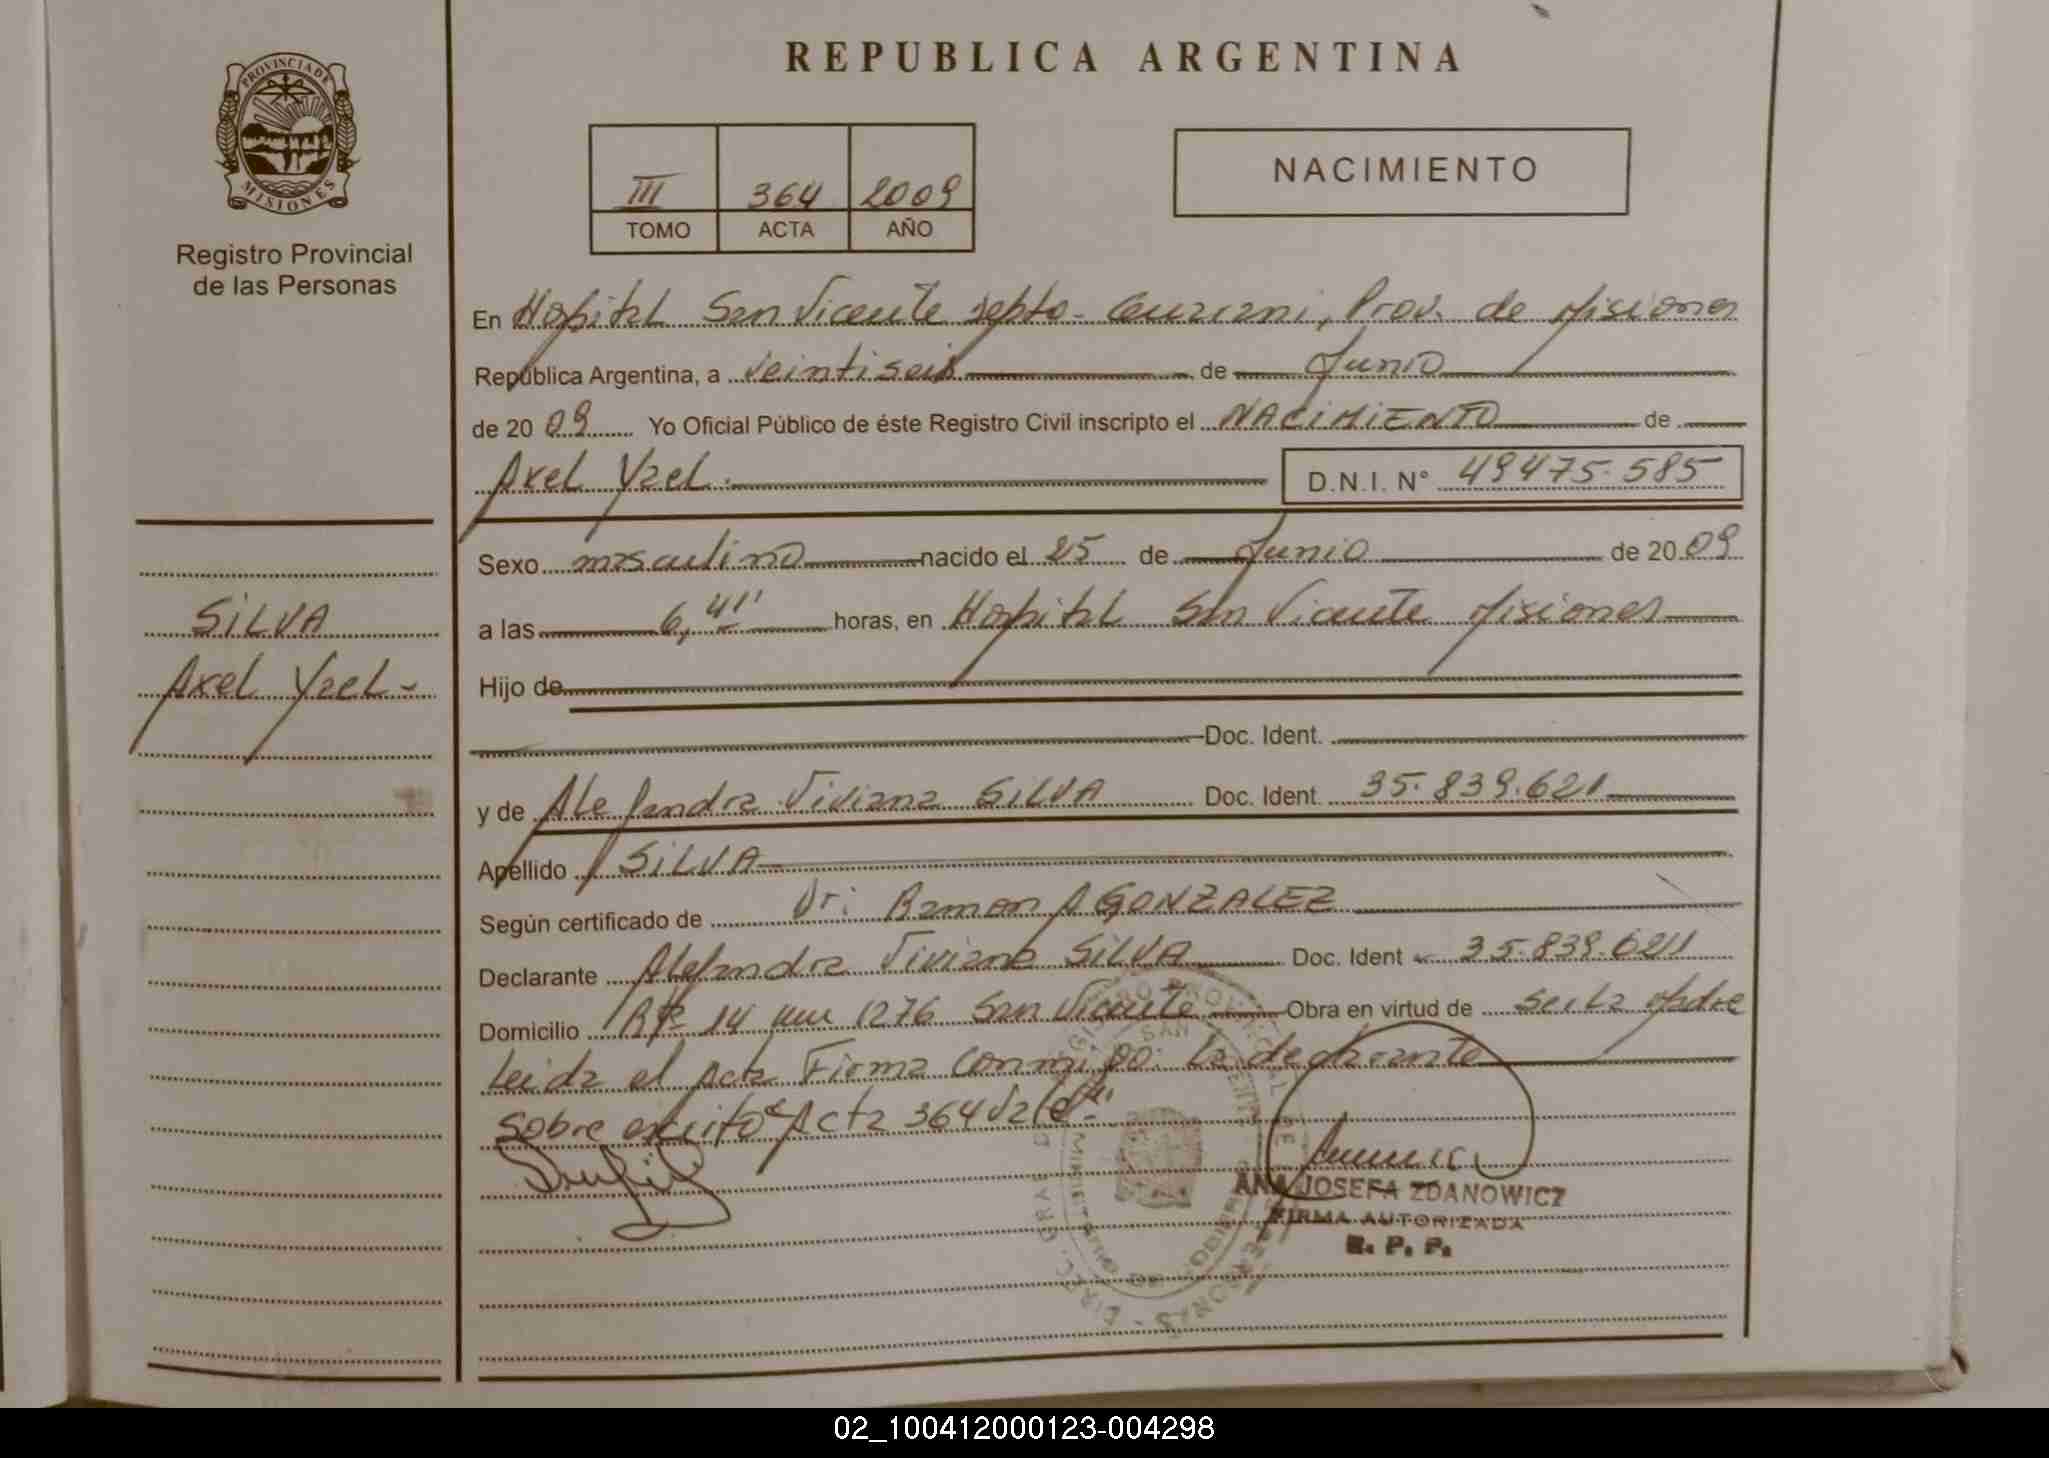 REPUBLICA ARGENTINA
PROVINCIA DE
MISIONES
Registro Provincial
de las Personas
III 364 2009
TOMO ACTA AÑO
NACIMIENTO
En Hospital San Vicente Depto. Guarani, Prov. de Misiones
República Argentina, a Veintiseis de Junio
de 2009 Yo Oficial Público de éste Registro Civil inscripto el NACIMIENTO de
Axel Yzel.
D.N.I. N° 49475.585
Sexo masculino nacido el 25 de Junio de 2009
a las 6,41' horas, en Hospital San Vicente Misiones
Hijo de
Doc. Ident.
y de Alejandra Viviana SILVA Doc. Ident. 35.839.621
Apellido SILVA
Según certificado de Dr: Ramon A GONZALEZ
Declarante Alejandra Viviana SILVA Doc. Ident 35.839.621
Domicilio Rta 14 km 1276 San Vicente Obra en virtud de ser la Madre
Leida el Acta Firma Conmigo: la declarante
Sobre escrito Acta 364 Vale
SILVA
Axel Yzel-
ANA JOSEFA ZDANOWICZ
FIRMA AUTORIZADA
R. P. P.
02_100412000123-004298